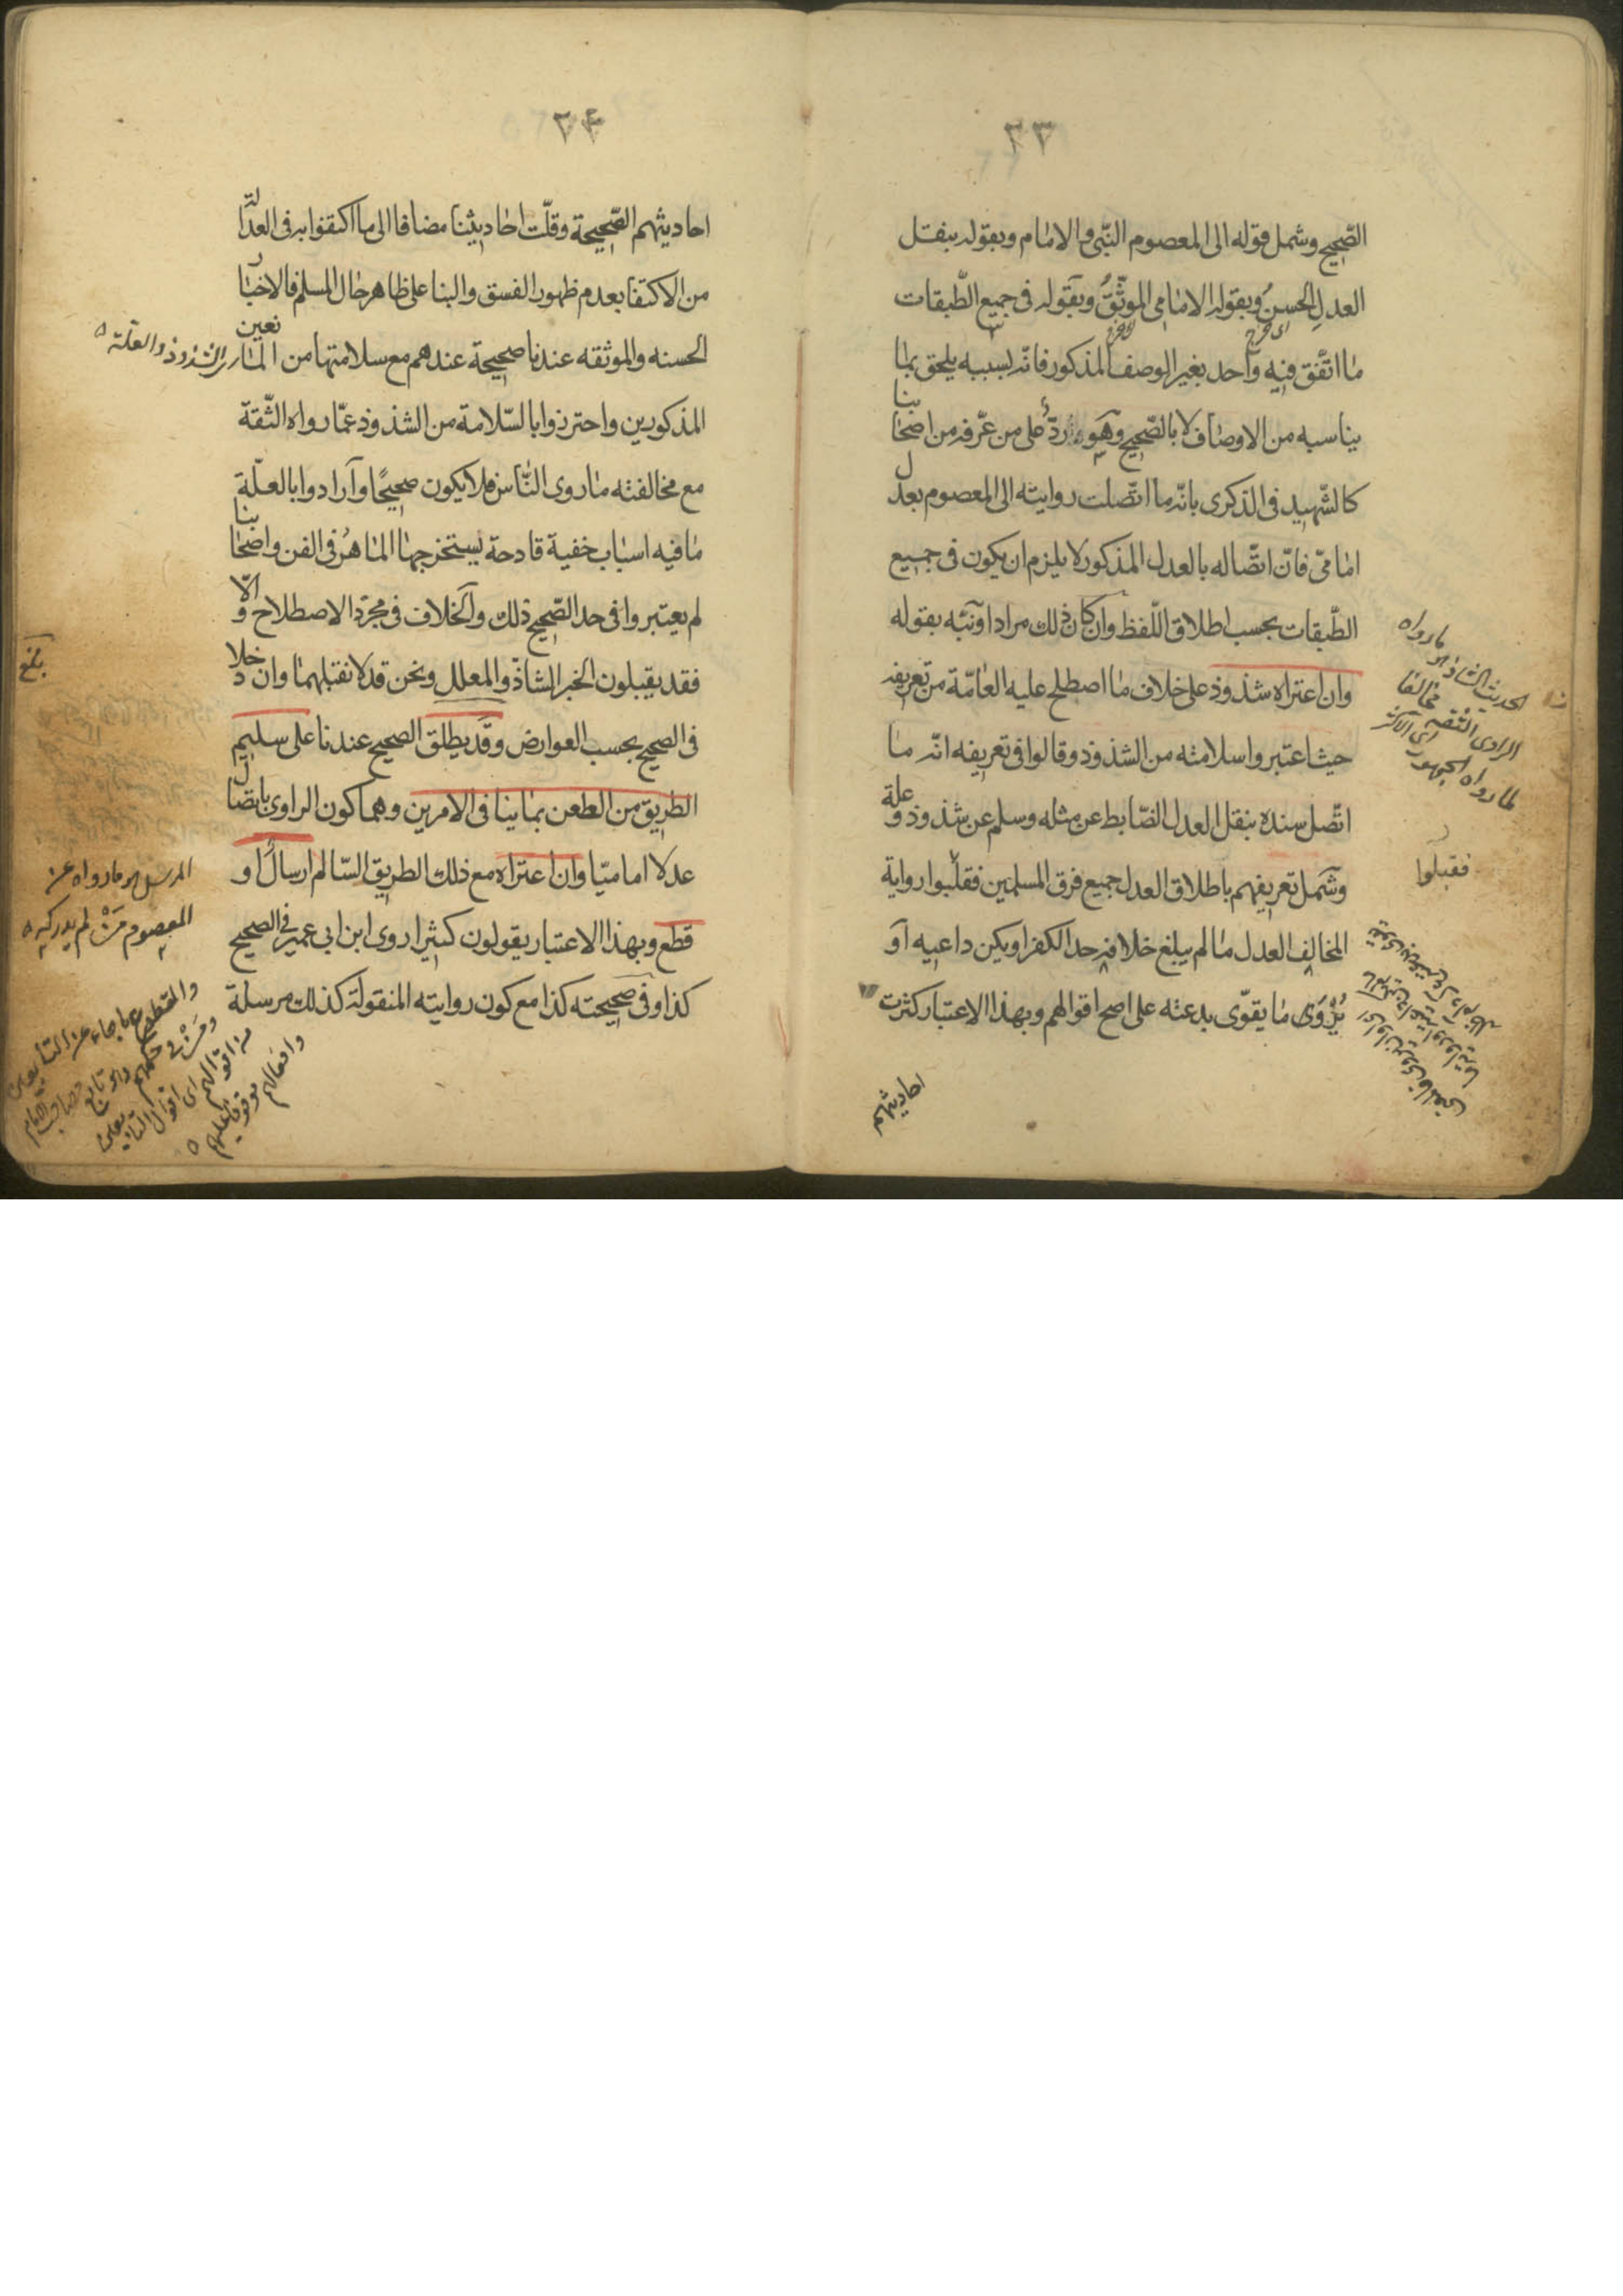 ٣٣
الصّحيح وشمل قوله الى المعصوم النّبى والامام وبقوله بنقل
العدل الحسنُ وبقوله الامامى الموثّقُ وبقوله فى جميع الطّبقات
ما اتّفق فيه واحد بغير الوصف المذكور فانّه بسببه يلحق بما
يناسبه من الاوصاف لا بالصّحيح وهو ردّ على من عرّفه من اصحابنا
كالشّهيد فى الذكرى بانّه ما اتّصلت روايته الى المعصوم بعدل
امامىّ فانّ اتّصاله بالعدل المذكور لا يلزم ان يكون فى جميع
الطّبقات بحسب اطلاق اللّفظ وان كان ذلك مرادا ونبّه بقوله
وان اعتراه شذوذ على خلاف ما اصطلح عليه العامّة من تعريفه
حيث اعتبروا سلامته من الشذوذ وقالوا فى تعريفه انّه ما
اتّصل سنده بنقل العدل الضّابط عن مثله وسلم عن شذوذ وعلة
وشمل تعريفهم باطلاق العدل جميع فرق المسلمين فقبلوا رواية
المخالف العدل ما لم يبلغ خلافه حد الكفر او يكن داعيه او
يُرْوَى ما يقوّى بدعته على اصح اقوالهم وبهذا الاعتبار كثرت
احاديثهم
الحديث الشاذ هو ما رواه
الراوى الثقة مخالفا
لما رواه الجمهور اى الاكثر
فقبلوا
٣٤
احاديثهم الصّحيحة وقلّت احاديثنا مضافا الى ما اكتفوا به فى العدالة
من الاكتفا بعدم ظهور الفسق والبنا على ظاهر حال المسلم فالاخبار
الحسنه والموثقه عندنا صحيحة عندهم مع سلامتها من المانعين
المذكورين واحترزوا بالسّلامة من الشذوذ عمّا رواه الثّقة
مع مخالفته ما روى النّاس فلا يكون صحيحًا وارادوا بالعلّة
ما فيه اسباب خفية قادحة يستخرجها الماهرُ فى الفن واصحابنا
لم يعتبروا فى حد الصّحيح ذلك والخلاف فى مجرّد الاصطلاح والّا
فقد يقبلون الخبر الشاذّ والمعلل ونحن قد لا نقبلهما وان دخلا
فى الصحيح بحسب العوارض وقد يطلق الصحيح عندنا على سليم
الطريق من الطعن بما ينافى الامرين وهما كون الراوى باتصال
عدلا اماميّا وان اعتراه مع ذلك الطريق السّالم ارسالٌ او
قطع وبهذا الاعتبار يقولون كثيرا روى ابن ابى عمير فى الصحيح
كذا وفى صحيحته كذا مع كون روايته المنقولة كذلك مرسلة
الشذوذ والعلّة
بلغ
المرسل هو ما رواه عن
المعصوم مَنْ لم يدركه
والمقطوع ما جاء عن التابعين
ومَنْ فى حكمهم
من اقوالهم
وافعالهم
موقوفا عليهم